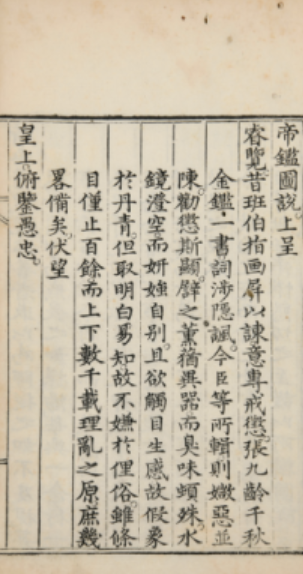 帝鑑圖說上呈
睿覽昔班伯指画屏以諫意專戒懲張九齡千秋
金鑑一書詞涉隠諷今臣等所輯則媺惡並
陳勸懲斯顯譬之薰蕕異器而臭味頓殊水
鏡澄空而妍媸自別且欲觸目生感故假象
於丹青但取明白易知故不嫌於俚俗雖條
目僅止百餘而上下數千載理亂之原庶幾
畧備矣伏望
皇上俯鑒愚忠